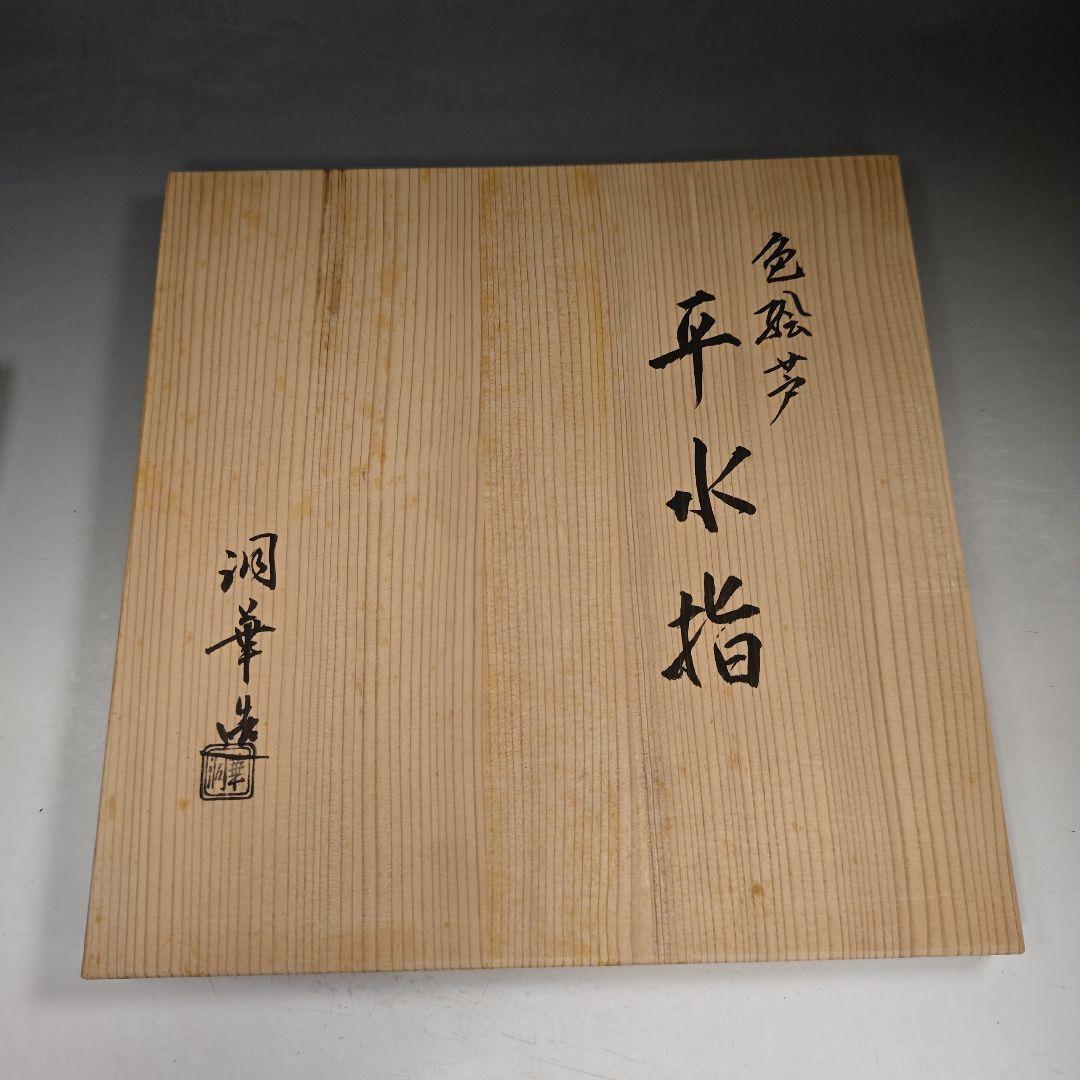 色絵芦
平水指
洞華造
洞華